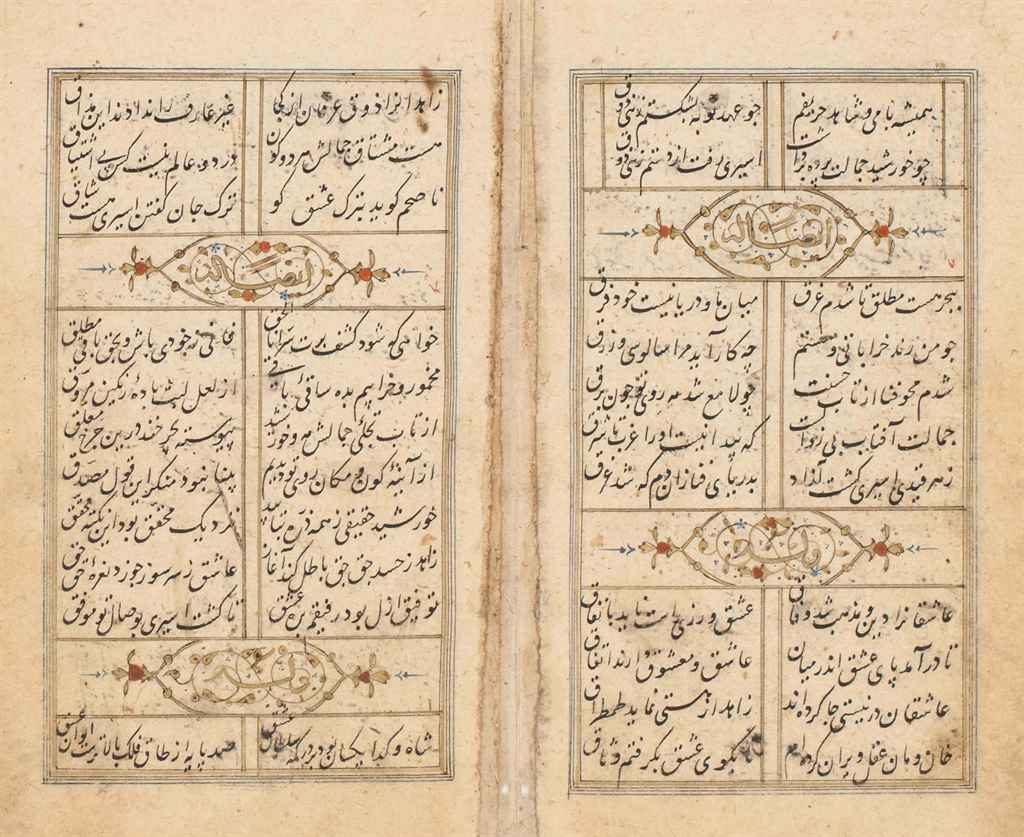 همیشه با می و شاهد حریفم چو عهد توبه بشکستم زهی ذوق
چو خورشید جمالت پرده برداشت اسیری رفت از دستم زهی ذوق
ایضاً له
ببحر هست مطلق تا شدم غرق میان ما و دریا نیست خود فرق
چو من رند خراباتی و مستم چه کار آید مرا سالوسی و زرق
شدم محو فنا از تاب حسنت چو لامع شد مه روی تو چون برق
جمالت آفتاب بی زوالست که پیدا نیست او را غرب تا شرق
زهر قیدی اسیری گشت آزاد بدریای فنا زان دم که شد غرق
وله
عاشقانرا دین و مذهب شد وفاق عشق ورزی راست ناید با نفاق
تا درآمد پای عشق اندر میان عاشق و معشوق دارند اتفاق
عاشقان در نیستی جا کرده اند زاهد از هستی نماید طمطراق
خان و مان عقل ویران کرده ام تا بکوی عشق بگرفتم وثاق
زاهدانرا ذوق عرفان از کجا غیر عارف را ندادند این مذاق
هست مشتاق جمالش هر دو کون در دو عالم نیست کس بی اشتیاق
ناصحم گوید بترک عشق کو ترک جان گفتن اسیری هست شاق
ایضاً له
خواهی که شود کشف برت سر انا الحق فانی ز خودی باش و بحق باقی مطلق
مخمور و خرابیم بده ساقی باقی از لعل لبت باده رنگین مروق
از تاب تجلی جمالش مه و خورشید پیوسته بچرخند درین چرخ معلق
از آینه کون و مکان روی تو دیدیم پنهان نبود منکر این قول مصدق
خورشید حقیقی ز همه ذره بتابید نزدیک محقق بود این نکته محقق
زاهد ز حسد حق حق باطل کند آغاز عاشق ز سر سوز چو زد نعره حق حق
توفیق ازل بود رفیقم بره عشق تا گشت اسیری بوصال تو موفق
وله
شاه و گدا یکسان بود در درگه سلطان عشق صد پایه از طاق فلک بالاترست ایوان عشق